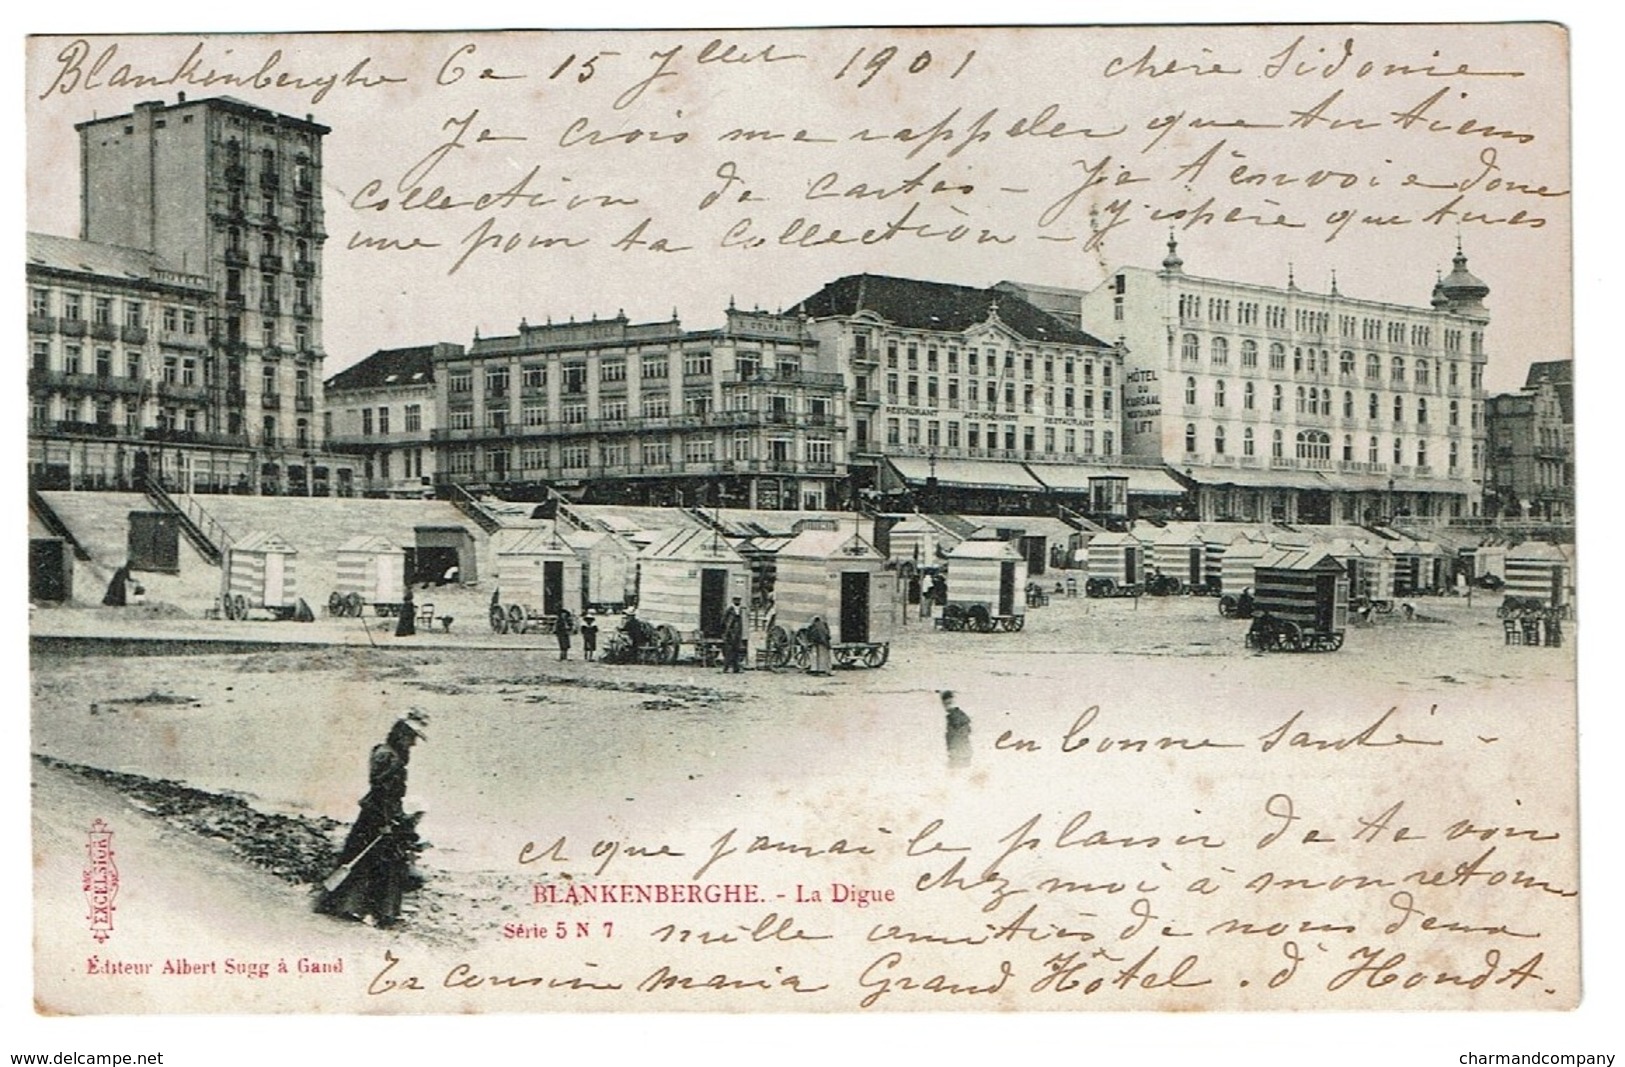 Blankenberghe Ce 15 Jllet 1901 chère Sidonie
Je crois me rappeler que tu tiens
collection de cartes - Je t'envoie donc
une pour ta collection - J'espère que tu es
HÔTEL
DU
KURSAAL
RESTAURANT
LIFT
RESTAURANT RESTAURANT
en bonne santé -
et que j'amai le plaisir de te voir
chez moi à mon retour
BLANKENBERGHE. - La Digue
Série 5 N 7
mille amitiés de nous deux
EXCELSIOR
Éditeur Albert Sugg à Gand
Ta cousine maria Grand Hôtel . d'Hondt.
www.delcampe.net
charmandcompany